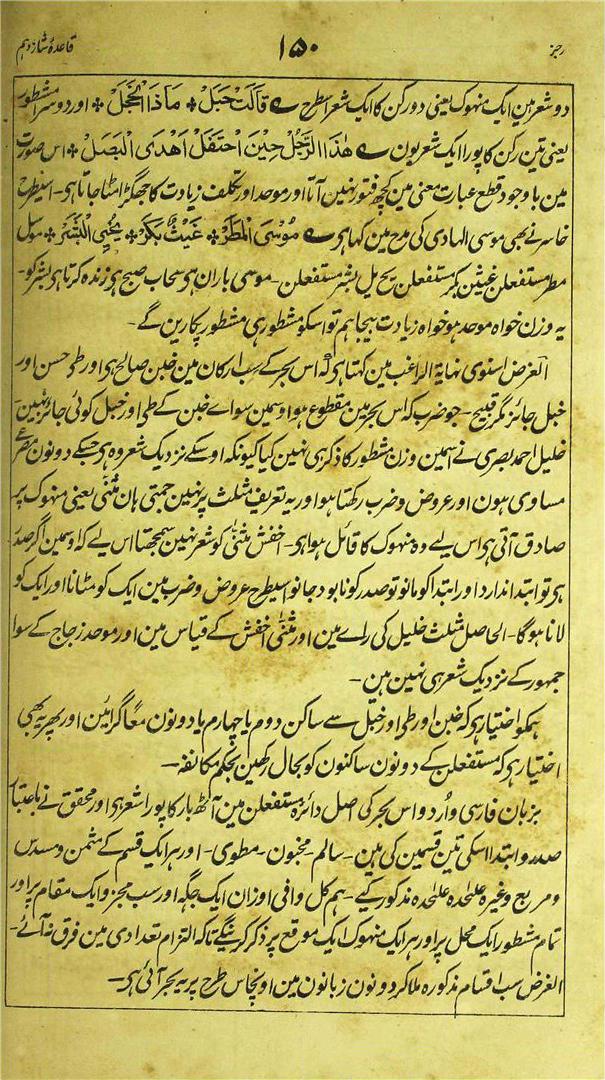 رجز ۱۵۰ قاعدۂ شانزدہم
دو شعر ہین ایک منہوک یعنی دو رکن کا ایک شعر اسطرح ے قَالَتْ حَبَلْ * مَاذَا الْخَجَلْ * اور دوسرا مشطور
یعنی تین رکن کا پورا ایک شعر یون ے ھٰذَا الرَّجُلُ حِیْنَ احْتَفَلْ اَھْدَی الْبَصَلْ * اس صورت
مین باوجود قطع عبارت معنی مین کچھ فتور نہین آتا اور موحد اور تکلف زیادت کا جھگڑا مٹا جاتا ہی۔ اسیطرح
خاسر نے بھی موسی الہادی کی مدح مین کہا ہی ے مُوْسَی الْمَطَرْ * غَیْثٌ بَکَرْ * یُحْیِی الْبَشَرْ * موسل
مطر مستفعلن غیثن بکر مستفعلن یح یل بشر مستفعلن۔ موسی باران ہی سحاب صبح ہی زندہ کرتا ہی بشر کو۔
یہ وزن خواہ موحد ہو خواہ زیادت بیجا ہم تو اسکو مشطور ہی مشطور پکارین گے۔
الغرض اسنوی نہایۃ الراغب مین کہتا ہی کہ اس بحر کے سب ارکان مین خبن صالح ہی اور طی حسن اور
خبل جائز مگر قبیح۔ جو ضرب کہ اس بحر مین مقطوع ہو اوسمین سواے خبن کے طی اور خبل کوئی جائز نہین
خلیل احمد بصری نے اسمین وزن مشطور کا ذکر ہی نہین کیا کیونکہ اوسکے نزدیک شعر وہ ہی جسکے دونون مصرعے
مساوی ہون اور عروض و ضرب رکھتا ہو اور یہ تعریف مثلث پر نہین جمتی ہان مثنٰی یعنی منہوک پر
صادق آتی ہی اس لیے وہ منہوک کا قائل ہوا ہی۔ اخفش مثنٰی کو شعر نہین سمجھتا اس لیے کہ اوسمین اگر صدر
ہی تو ابتدا ندارد اور ابتدا کو مانو تو صدر کو نابود جانو اسیطرح عروض و ضرب مین ایک کو مٹانا اور ایک کو
لانا ہوگا۔ الحاصل مثلث خلیل کی راے مین اور مثنٰی اخفش کے قیاس مین اور موحد زجاج کے سوا
جمہور کے نزدیک شعر ہی نہین ہین۔
ہمکو اختیار ہی کہ خبن اور طی اور خبل سے ساکن دوم یا چہارم یا دونون معًا گرائین اور پھر یہ بھی
اختیار ہی کہ مستفعلن کے دونون ساکنون کو بحال رکھین بحکم مکانفہ۔
بزبان فارسی و اُردو اس بحر کی اصل دائرہ مستفعلن مین آٹھ بار کا پورا شعر ہی اور محقق نے باعتبار
صدر و ابتدا اسکی تین قسمین کی ہین۔ سالم۔ مخبون۔ مطوی۔ اور ہر ایک قسم کے مثمن و مسدس
و مربع وغیرہ علٰحدہ علٰحدہ مذکور کیے۔ ہم کل وافی اوزان ایک جگہ اور سب مجزو ایک مقام پر اور
تمام مشطور ایک محل پر اور ہر ایک منہوک ایک موقع پر ذکر کرینگے تاکہ التزام تعدادی مین فرق نہ آئے۔
الغرض سب اقسام مذکورہ ملاکر دونون زبانون مین اونچاس طرح پر یہ بحر آئی ہی۔